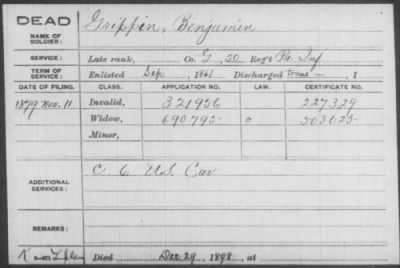 DEAD
NAME OF SOLDIER: Grippin, Benjamin
SERVICE: Late rank, Co. G, 50 Reg't Inf
TERM OF SERVICE: Enlisted Sep 1861 Discharged trans 1
DATE OF FILING. CLASS. APPLICATION NO. LAW. CERTIFICATE NO.
1879 Nov. 11 Invalid, 321956 227329
Widow, 690795 503025
Minor,
ADDITIONAL SERVICES: C 6 U.S. Cav.
REMARKS:
Died Dec 29, 1898, at